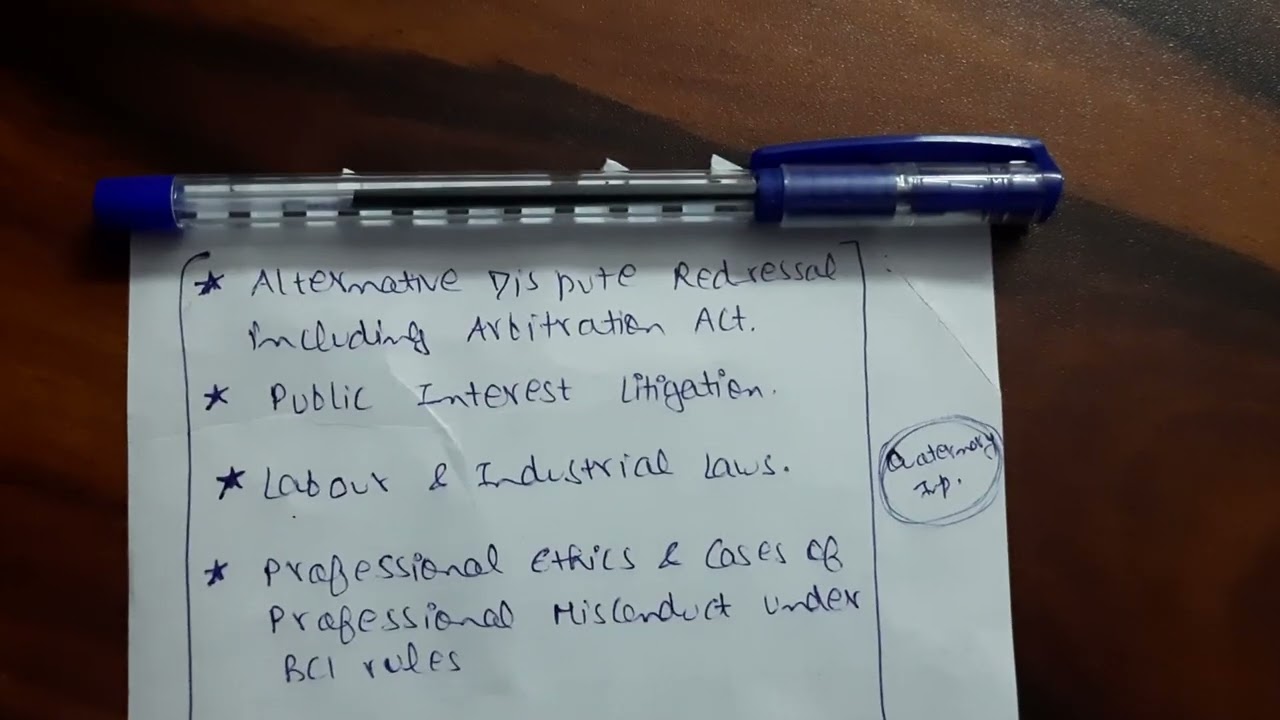 ★ Alternative Dispute Redressal
including Arbitration Act.
★ Public Interest Litigation.
★ Labour & Industrial Laws.
Quaternary
Imp.
★ Professional Ethics & Cases of
Professional Misconduct under
BCI rules